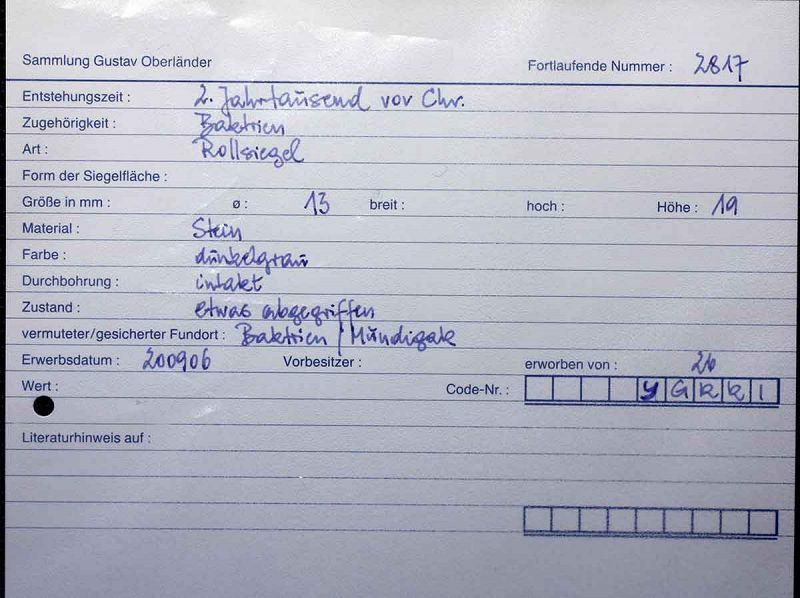 Sammlung Gustav Oberländer Fortlaufende Nummer : 2817
Entstehungszeit : 2. Jahrtausend vor Chr.
Zugehörigkeit : Baktrien
Art : Rollsiegel
Form der Siegelfläche :
Größe in mm : ø : 13 breit : hoch : Höhe : 19
Material : Stein
Farbe : dunkelgrau
Durchbohrung : intakt
Zustand : etwas abgegriffen
vermuteter/gesicherter Fundort : Baktrien / Mundigak
Erwerbsdatum : 200906 Vorbesitzer : erworben von : 26
Wert : Code-Nr. : Y G R R I
Literaturhinweis auf :